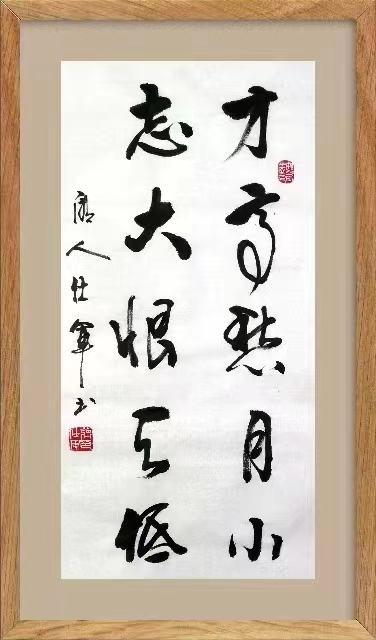 才高愁月小
志大恨天低
人仕军书